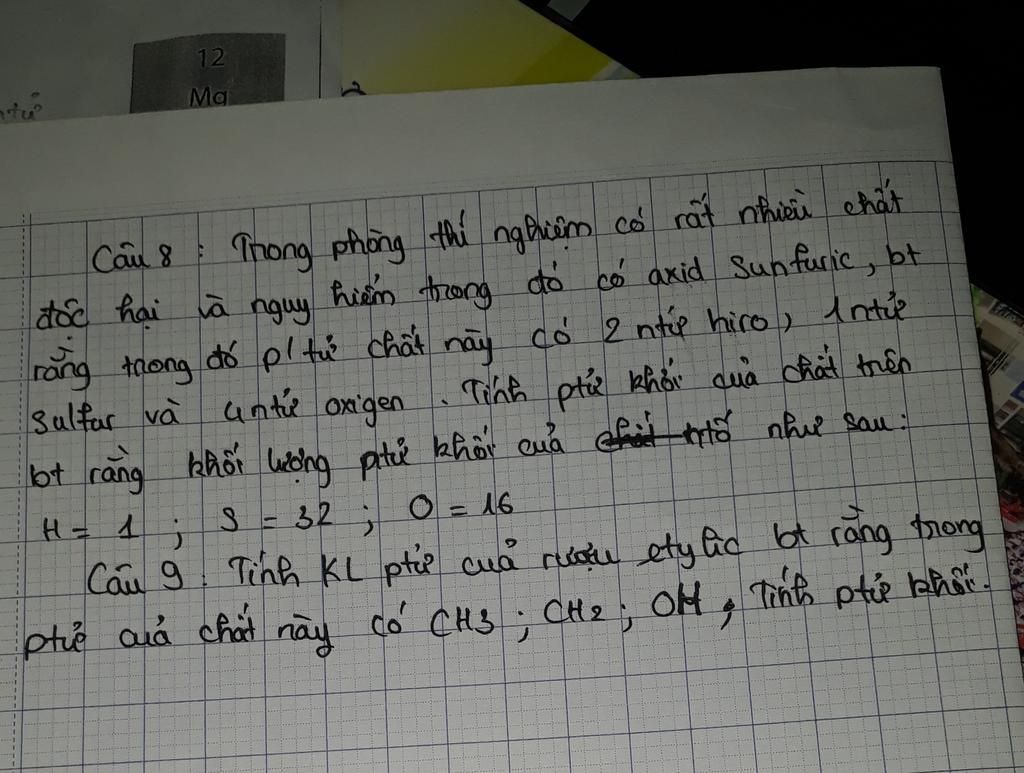 12
Mg
ntử
Câu 8 : Trong phòng thí nghiệm có rất nhiều chất
độc hại và nguy hiểm trong đó có axid sunfuric, bt
rằng trong đó p/tử chất này có 2 ntử hiro, 1 ntử
Sulfur và 4 ntử oxigen. Tính ptử khối cuả chất trên
bt rằng khối lượng ptử khối cuả chất ntố như sau:
H = 1 ; S = 32 ; O = 16
Câu 9. Tính KL ptử cuả rượu etylic bt rằng trong
ptử cuả chất này có CH3 ; CH2 ; OH, Tính ptử khối.